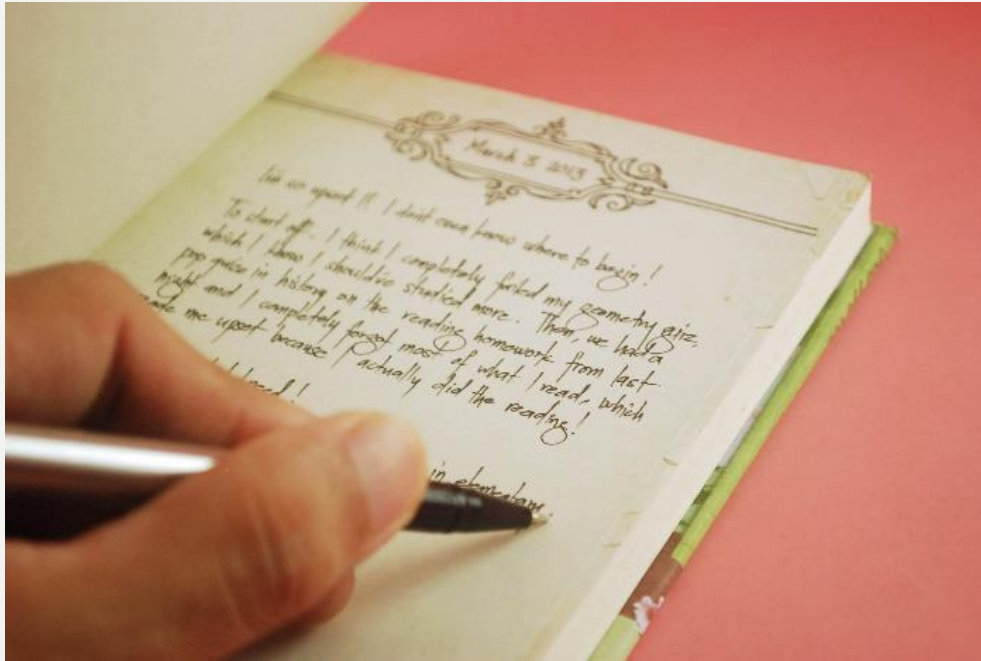 March 3 2013
I'm so upset!! I don't even know where to begin!
To start off- I think I completely failed my geometry quiz,
which I know I should've studied more. Then, we had a
pop quize in history on the reading homework from last
night and I completely forgot most of what I read, which
made me upset because I actually did the reading!
in elementary.